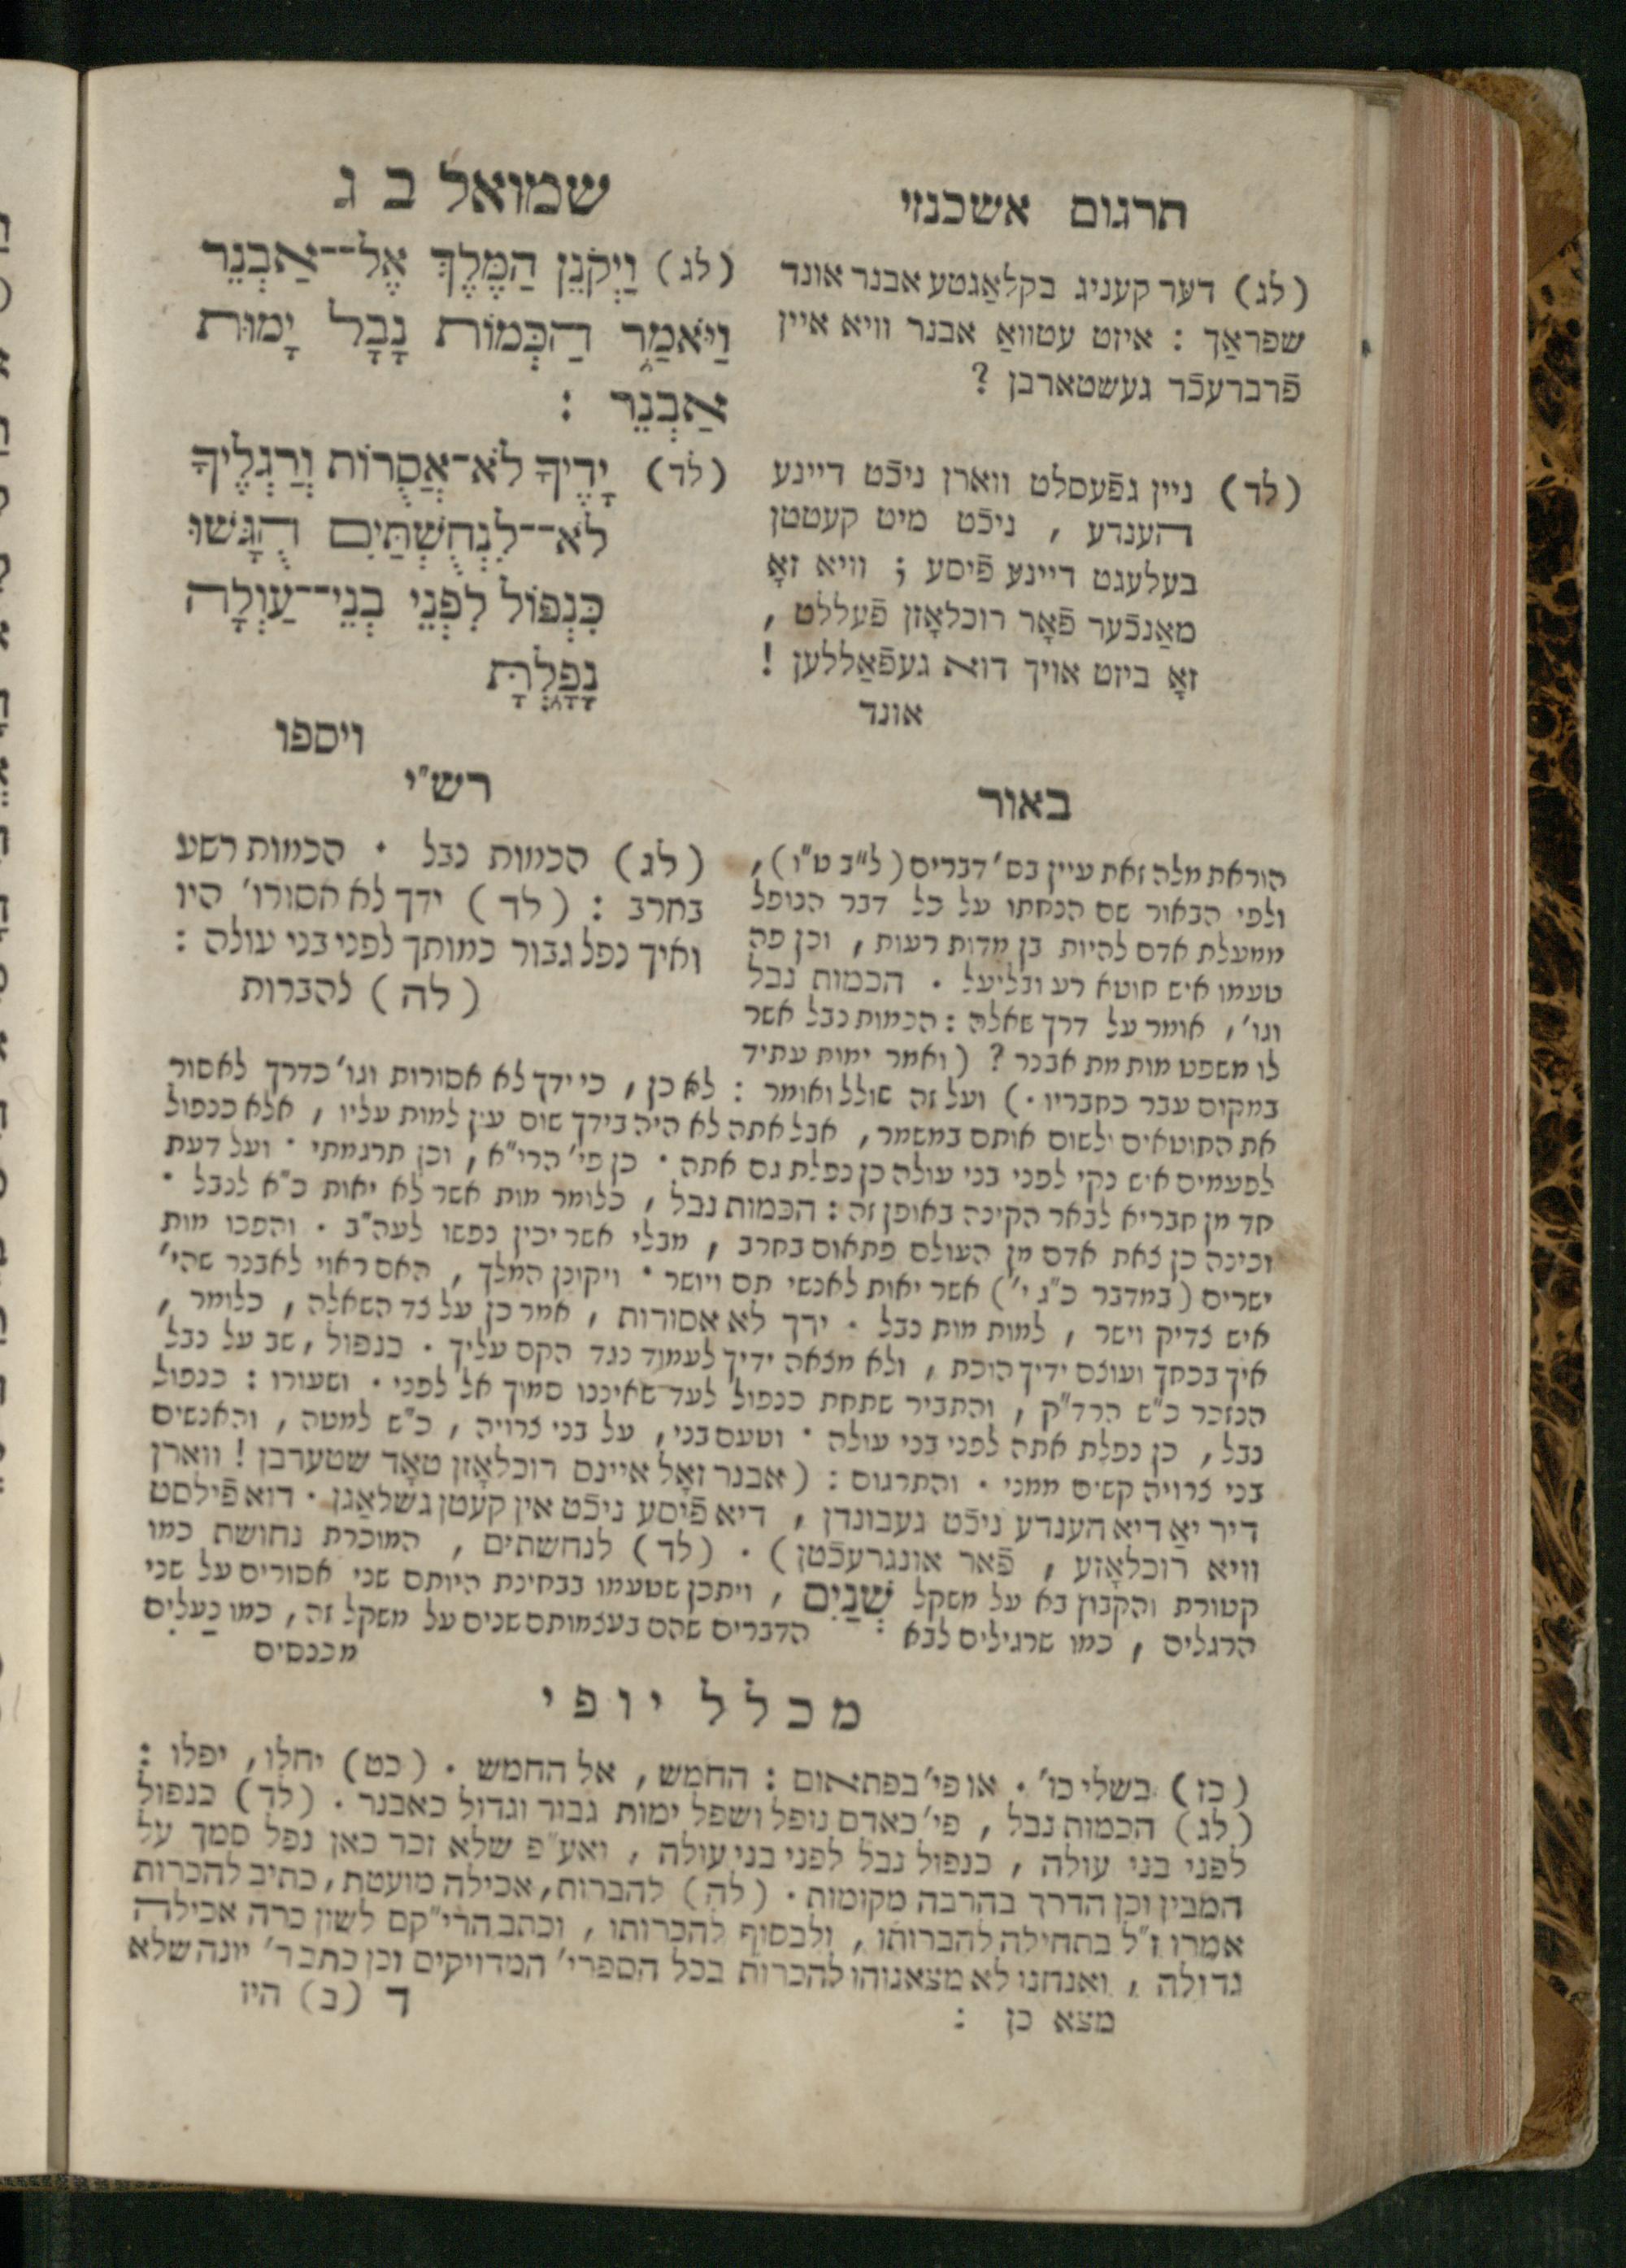 תרגום אשכנזי
(לג) דער קעניג בקלאַגטע אבנר אונד
שפראַך : איזט עטוואַ אבנר וויא איין
פֿרברעכֿר געשטארבן ?
(לד) ניין גפֿעסלט ווארן ניכֿט דיינע
הענדע , ניכֿט מיט קעטטן
בעלעגט דיינע פֿיסע ; וויא זאָ
מאַנכֿער פֿאָר רוכלאָזן פֿעללט ,
זאָ ביזט אויך דוא געפֿאַללען !
אונד
שמואל ב ג
(לג) וַיְקֹנֵן הַמֶּלֶךְ אֶל־־אַבְנֵר
וַיֹּאמַר הַכְּמוֹת נָבָל יָמוּת
אַבְנֵר :
(לד) יָדֶיךָ לֹא־אֲסֻרוֹת וְרַגְלֶיךָ
לֹא־־לִנְחֻשְׁתַּיִם הֻגָּשׁוּ
כִּנְפוֹל לִפְנֵי בְנֵי־־עַוְלָה
נָפָלְתָּ
ויספו
באור
הוראת מלה זאת עיין בס' דברים (ל"ב ט"ו) ,
ולפי הבאור שם הנחתו על כל דבר הנופל
ממעלת אדם להיות בן מדות רעות , וכן פה
טעמו איש חוטא רע ובליעל . הכמות נבל
וגו' , אומר על דרך שאלה : הכמות נבל אשר
לו משפט מות מת אבנר ? (ואמר ימות עתיד
רש"י
(לג) הכמות נבל . הכמות רשע
בחרב : (לד) ידך לא אסורו' היו
ואיך נפל גבור כמותך לפני בני עולה :
(לה) להברות
במקום עבר כחבריו .) ועל זה שולל ואומר : לא כן , כי ידך לא אסורות וגו' כדרך לאסור
את החוטאים ולשום אותם במשמר , אבל אתה לא היה בידך שום עון למות עליו , אלא כנפול
לפעמים איש נקי לפני בני עולה כן נפלת גם אתה . כן פי' הרי"א , וכן תרגמתי . ועל דעת
חד מן חבריא לבאר הקינה באופן זה : הכמות נבל , כלומר מות אשר לא יאות כ"א לנבל .
וכינה כן צאת אדם מן העולם פתאום בחרב , מבלי אשר יכין נפשו לעה"ב . והפכו מות
ישרים (במדבר כ"ג י') אשר יאות לאנשי תם ויושר . ויקונן המלך , האם ראוי לאבנר שהי'
איש צדיק וישר , למות מות נבל . ידך לא אסורות , אמר כן על צד השאלה , כלומר ,
איך בכחך ועוצם ידיך הוכת , ולא מצאה ידיך לעמוד כנגד הקם עליך . כנפול , שב על נבל
הנזכר כ"ש הרד"ק , והתביר שתחת כנפול לעד שאיננו סמוך אל לפני . ושעורו : כנפול
נבל , כן נפלת אתה לפני בני עולה . וטעם בני , על בני צרויה , כ"ש למטה , והאנשים
בני צרויה קשים ממני . והתרגום : (אבנר זאָל איינם רוכלאָזן טאָד שטערבן ! ווארן
דיר יאַ דיא הענדע ניכֿט געבונדן , דיא פֿיסע ניכֿט אין קעטן גשלאַגן . דוא פֿילסט
וויא רוכלאָזע , פֿאר אונגרעכֿטן) . (לד) לנחשתים , המוכרת נחושת כמו
קטורת והקבוץ בא על משקל שְׁנַיִם , ויתכן שטעמו בבחינת היותם שני אסורים על שני
הרגלים , כמו שרגילים לבא הדברים שהם בעצמותם שנים על משקל זה , כמו נַעלים
מכנסים
מכלל יופי
(כז) בשלי כו' . או פי' בפתאום : החמש , אל החמש . (כט) יחלו , יפלו :
(לג) הכמות נבל , פי' כאדם נופל ושפל ימות גבור וגדול כאבנר . (לד) כנפול
לפני בני עולה , כנפול נבל לפני בני עולה , ואע"פ שלא זכר כאן נפל סמך על
המבין וכן הדרך בהרבה מקומות . (לה) להברות , אכילה מועטת , כתיב להכרות
אמרו ז"ל בתחילה להברותו , ולבסוף להכרותו , וכתב הרי"קם לשון כרה אכילה
גדולה , ואנחנו לא מצאנוהו להכרות בכל הספרי' המדויקים וכן כתב ר' יונה שלא
מצא כן :
ד (ב) היו